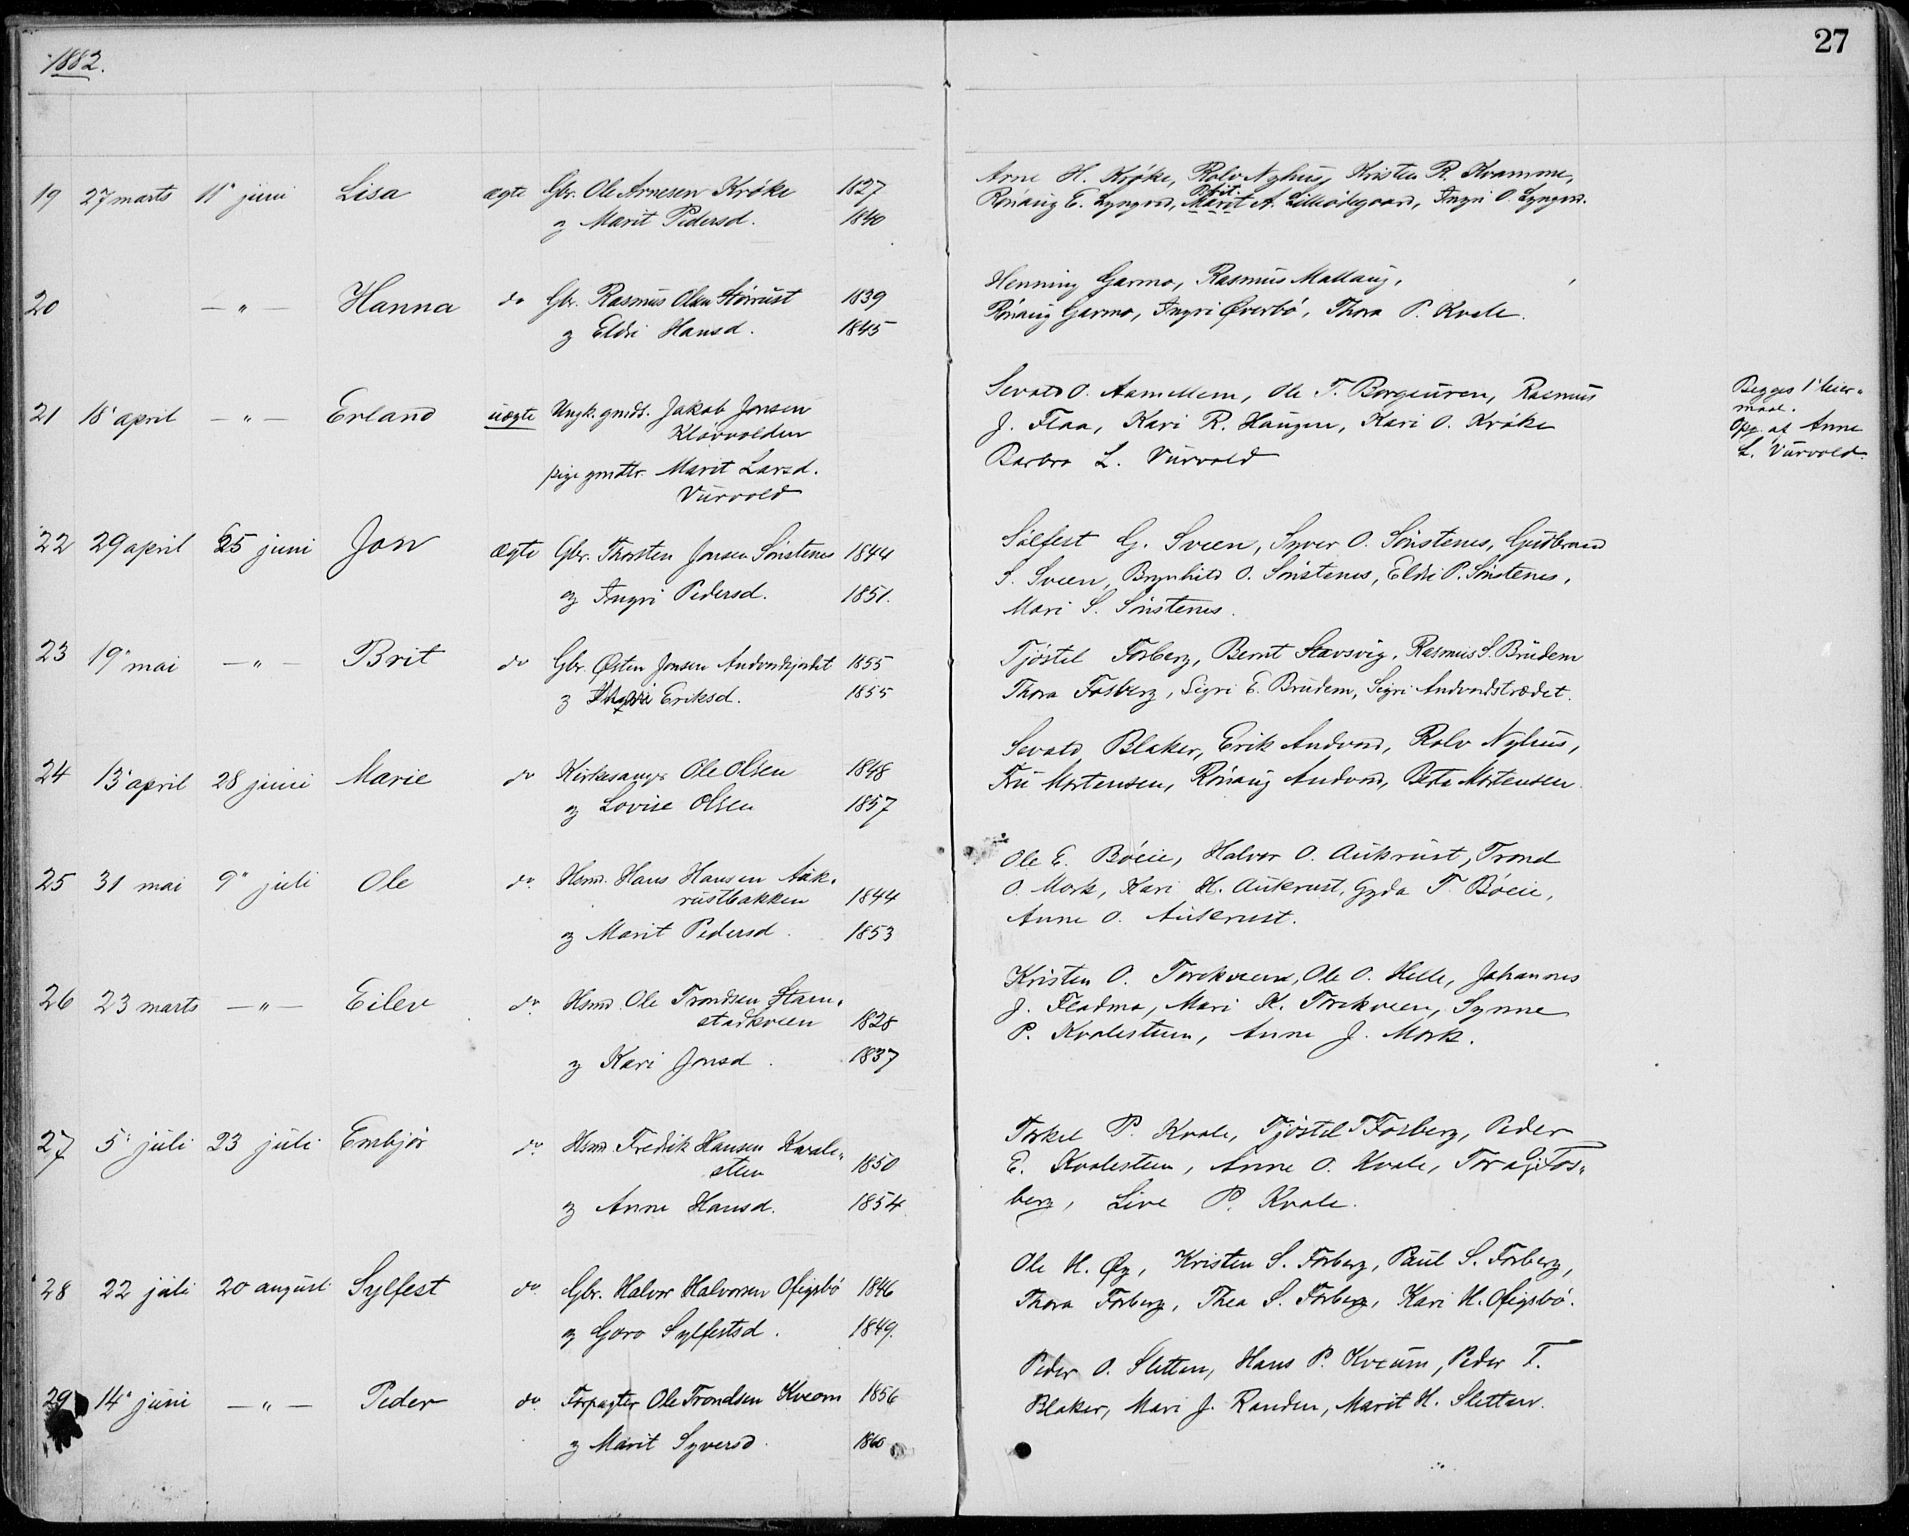 1882.
27
19 27 marts 11" juni Lisa ægte Gbr. Ole Arnesen Krøke 1827
og Marit Pedersd. 1840
Arne H. Krøke, Rolv Nyhus, Kristen R. Kvamme,
Brit.
Rønnaug E. Lyngved, Marit A. Lilleødegaard, Ingri O. Lyngved.
20 — " — Hanna do Gbr. Rasmus Olsen Störrust 1839
og Eldri Hansd. 1845
Henning Garmo, Rasmus Mallaug,
Rönaug Garmo, Ingri Øverbö, Thora P. Kvale.
21 18' april — " — Erland uægte Ungk. gmdt. Jakob Jonsen
Klövvolden
pige gmdtr. Marit Larsd.
Vürvold
Sevald O. Aamellem, Ole T. Borgeüren, Rasmus
J. Flaa, Kari R. Haugen, Kari O. Kröke
Barbra L. Vürvold
Begges 1' leier-
maal.
Opg. af Anne
L. Vürvold.
22 29 april 25 juni Jon ægte Gbr. Thorsten Jonsen Sönstenes 1844
og Ingri Pedersd. 1851.
Sülfest G. Sveen, Syver O. Sönstenes, Gudbrand
S. Sveen, Brynhild O. Sönstenes, Eldri P. Sönstenes,
Mari S. Sönstenes.
23 19' mai — " — Brit do Gbr. Østen Jonsen Andvordsjordet 1855
og Eriksd. 1855
Tjöstel Fosberg, Bernt Stavsvig, Rasmus S. Brüdem
Thora Fosberg, Sigri E. Brüdem, Sigri Andvordstrædet.
24 13' april 28 juni Marie do Kirkesanger Ole Olsen 1848
og Lovise Olsen 1857
Sevald Blaker, Erik Andvord, Rolv Nyhus,
Fru Mortensen, Rönaug Andvord, Mortensen
25 31 mai 9" juli Ole do. Hsmd. Hans Hansen Auk-
rustbakken 1844
og Marit Pedersd. 1853
Ole E. Böeie, Halvor O. Aukrust, Trond
O. Mork, Kari H. Aukrust, Gyda T. Böeie,
Anne O. Aukrust.
26 23 marts — " — Eilev do. Hsmd. Ole Trondsen Stam-
stadkveen 1828
og Kari Jonsd. 1837
Kristen O. Torekveen, Ole O. Helle, Johannes
J. Fladmo, Mari K. Torekveen, Synne
P. Kvalesteen, Anne J. Mork.
27 5' juli 23 juli Embjör do. Hsmd. Fredrik Hansen Kvale-
steen 1850
og Anne Hansd. 1854
Torkel P. Kvale, Tjöstel T Fosberg, Peder
E. Kvalesteen, Anne O. Kvale, Tora G. Fos-
berg, Live P. Kvale.
28 22 juli 20 august Sylfest do. Gbr. Halvor Halvorsen Ofigsbö 1846
og Goro Sylfestsd. 1849.
Ole H. Øy, Kristen S. Forberg, Paul S. Forberg,
Thora Forberg, Thea S. Forberg, Kari H. Ofigsbö.
29 14' juni — " — Peder do. Forpagter Ole Trondsen Kveom 1856
og Marit Syversd. 1860
Peder O. Sletten, Hans P. Kveum, Peder T.
Blaker, Mari J. Randen, Marit H. Sletten.